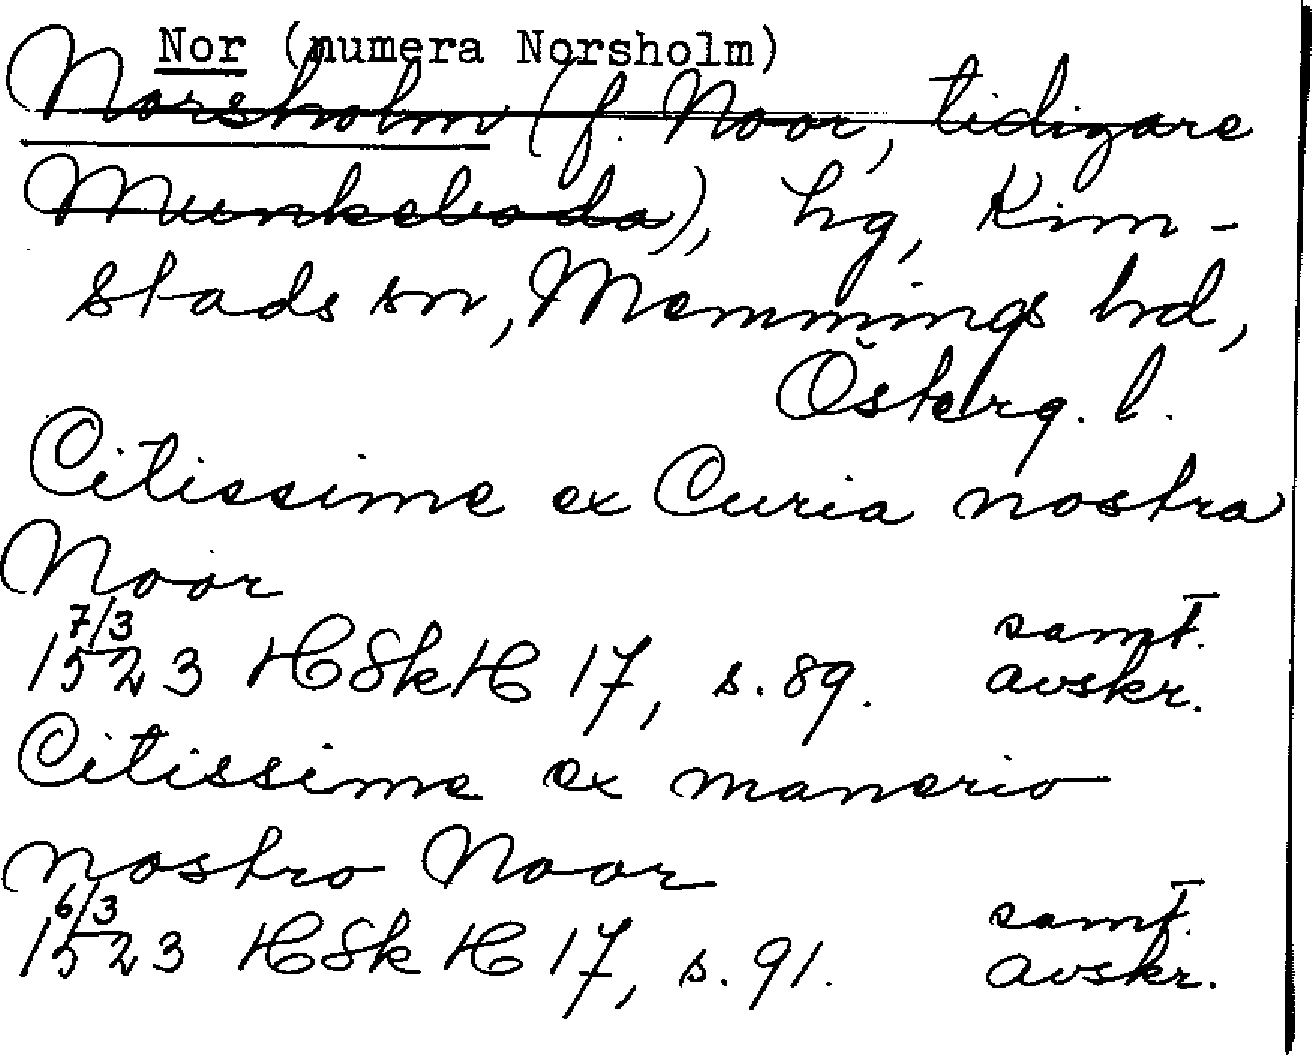 Nor (numera Norsholm)
Norsholm (f. Noor, tidigare
Munkeboda), hg, Kim-
stads sn, Memmings hd,
Österg. l.
Citissime ex Curia nostra
Noor
7/3 samt.
1523 HSkH 17, s. 89. avskr.
Citissime ex manerio
nostro Noor
6/3 samt.
1523 HSkH 17, s. 91. avskr.